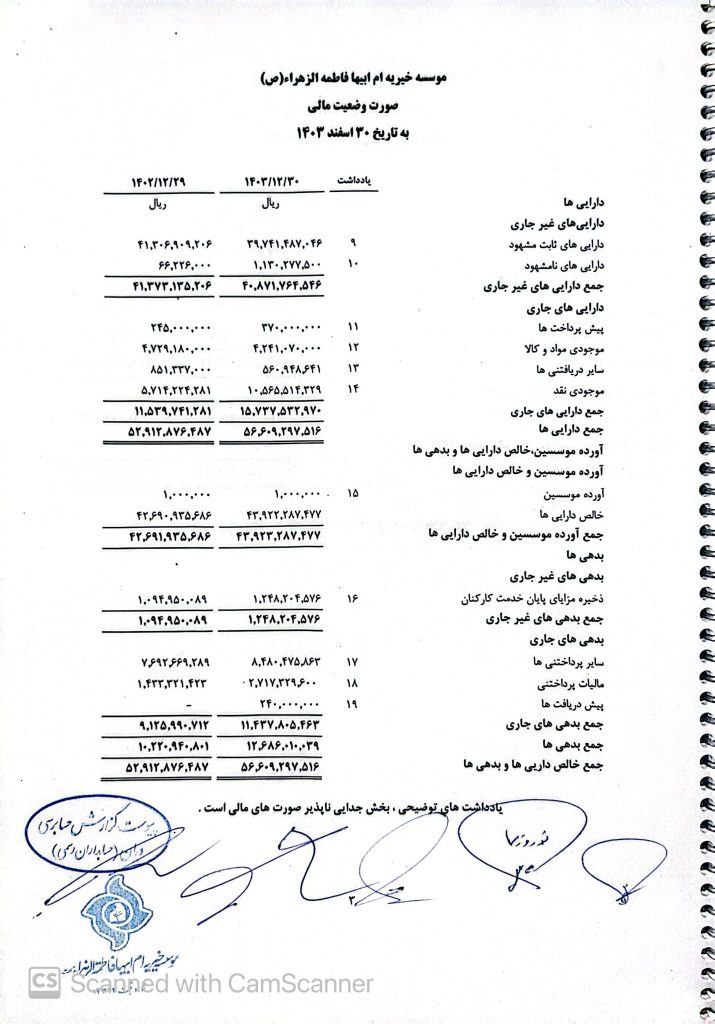 موسسه خیریه ام ابیها فاطمه الزهراء(ص)
صورت وضعیت مالی
به تاریخ ۳۰ اسفند ۱۴۰۳
یادداشت ۱۴۰۳/۱۲/۳۰ ۱۴۰۲/۱۲/۲۹
دارایی ها ریال ریال
دارایی‌های غیر جاری
دارایی های ثابت مشهود ۹ ۳۹,۷۴۱,۴۸۷,۰۴۶ ۴۱,۳۰۶,۹۰۹,۲۰۶
دارایی های نامشهود ۱۰ ۱,۱۳۰,۲۷۷,۵۰۰ ۶۶,۲۲۶,۰۰۰
جمع دارایی های غیر جاری ۴۰,۸۷۱,۷۶۴,۵۴۶ ۴۱,۳۷۳,۱۳۵,۲۰۶
دارایی های جاری
پیش پرداخت ها ۱۱ ۳۷۰,۰۰۰,۰۰۰ ۲۴۵,۰۰۰,۰۰۰
موجودی مواد و کالا ۱۲ ۴,۲۴۱,۰۷۰,۰۰۰ ۴,۷۲۹,۱۸۰,۰۰۰
سایر دریافتنی ها ۱۳ ۵۶۰,۹۴۸,۶۴۱ ۸۵۱,۳۳۷,۰۰۰
موجودی نقد ۱۴ ۱۰,۵۶۵,۵۱۴,۳۲۹ ۵,۷۱۴,۲۲۴,۲۸۱
جمع دارایی های جاری ۱۵,۷۳۷,۵۳۲,۹۷۰ ۱۱,۵۳۹,۷۴۱,۲۸۱
جمع دارایی ها ۵۶,۶۰۹,۲۹۷,۵۱۶ ۵۲,۹۱۲,۸۷۶,۴۸۷
آورده موسسین،خالص دارایی ها و بدهی ها
آورده موسسین و خالص دارایی ها
آورده موسسین ۱۵ ۱,۰۰۰,۰۰۰ ۱,۰۰۰,۰۰۰
خالص دارایی ها ۴۳,۹۲۲,۲۸۷,۴۷۷ ۴۲,۶۹۰,۹۳۵,۶۸۶
جمع آورده موسسین و خالص دارایی ها ۴۳,۹۲۳,۲۸۷,۴۷۷ ۴۲,۶۹۱,۹۳۵,۶۸۶
بدهی ها
بدهی های غیر جاری
ذخیره مزایای پایان خدمت کارکنان ۱۶ ۱,۲۴۸,۲۰۴,۵۷۶ ۱,۰۹۴,۹۵۰,۰۸۹
جمع بدهی های غیر جاری ۱,۲۴۸,۲۰۴,۵۷۶ ۱,۰۹۴,۹۵۰,۰۸۹
بدهی های جاری
سایر پرداختنی ها ۱۷ ۸,۴۸۰,۴۷۵,۸۶۳ ۷,۶۹۲,۶۶۹,۲۸۹
مالیات پرداختنی ۱۸ ۲,۷۱۷,۳۲۹,۶۰۰ ۱,۴۳۳,۳۲۱,۴۲۳
پیش دریافت ها ۱۹ ۲۴۰,۰۰۰,۰۰۰ -
جمع بدهی های جاری ۱۱,۴۳۷,۸۰۵,۴۶۳ ۹,۱۲۵,۹۹۰,۷۱۲
جمع بدهی ها ۱۲,۶۸۶,۰۱۰,۰۳۹ ۱۰,۲۲۰,۹۴۰,۸۰۱
جمع خالص داریی ها و بدهی ها ۵۶,۶۰۹,۲۹۷,۵۱۶ ۵۲,۹۱۲,۸۷۶,۴۸۷
یادداشت های توضیحی ، بخش جدایی ناپذیر صورت های مالی است .
پیوست گزارش حسابرسی
(حسابداران رسمی)
۳
موسسه خیریه ام ابیها فاطمة الزهراء
CS Scanned with CamScanner